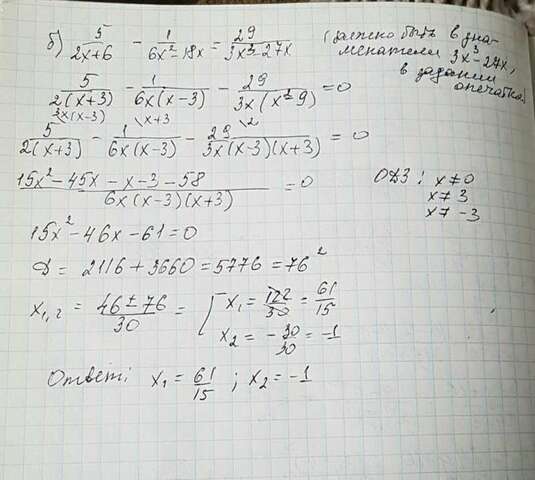 б) 5/(2x+6) - 1/(6x²-18x) = 29/(3x³-27x) (должно быть в зна-
менателе 3x³-27x,
в задании
опечатка)
5/(2(x+3)) - 1/(6x(x-3)) - 29/(3x(x²-9)) = 0
3x(x-3) \x+3 \2
5/(2(x+3)) - 1/(6x(x-3)) - 29/(3x(x-3)(x+3)) = 0
(15x²-45x-x-3-58)/(6x(x-3)(x+3)) = 0
ОДЗ: x≠0
x≠3
x≠-3
15x²-46x-61=0
D = 2116+3660=5776=76²
x₁,₂ = (46±76)/30 = [ x₁ = 122/30 = 61/15
x₂ = -30/30 = -1
Ответ: x₁ = 61/15 ; x₂ = -1